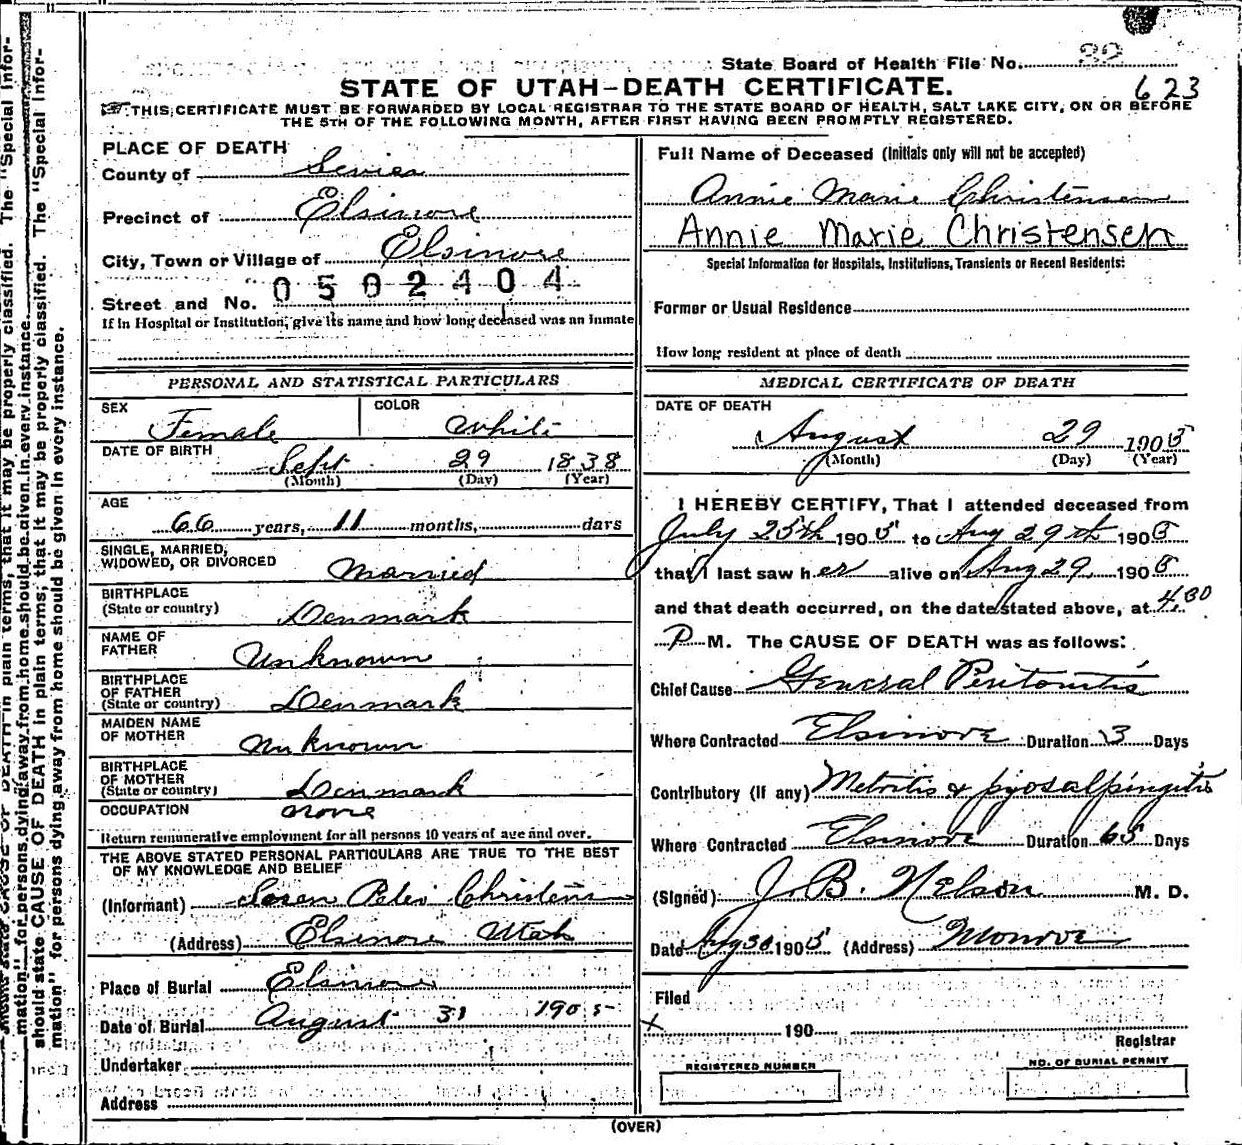 State Board of Health File No. 32
623
STATE OF UTAH-DEATH CERTIFICATE.
THIS CERTIFICATE MUST BE FORWARDED BY LOCAL REGISTRAR TO THE STATE BOARD OF HEALTH, SALT LAKE CITY, ON OR BEFORE
THE 5TH OF THE FOLLOWING MONTH, AFTER FIRST HAVING BEEN PROMPTLY REGISTERED.
PLACE OF DEATH
County of Sevier
Precinct of Elsinore
City, Town or Village of Elsinore
0502404
Street and No.
If in Hospital or Institution, give its name and how long deceased was an inmate
PERSONAL AND STATISTICAL PARTICULARS
SEX Female COLOR White
DATE OF BIRTH Sept 29 1838
(Month) (Day) (Year)
AGE
66 years, 11 months, days
SINGLE, MARRIED,
WIDOWED, OR DIVORCED Married
BIRTHPLACE
(State or country) Denmark
NAME OF
FATHER Unknown
BIRTHPLACE
OF FATHER
(State or country) Denmark
MAIDEN NAME
OF MOTHER Unknown
BIRTHPLACE
OF MOTHER
(State or country) Denmark
OCCUPATION none
Return remunerative employment for all persons 10 years of age and over.
THE ABOVE STATED PERSONAL PARTICULARS ARE TRUE TO THE BEST
OF MY KNOWLEDGE AND BELIEF
(Informant) Soren Peter Christensen
(Address) Elsinore Utah
Place of Burial Elsinore
Date of Burial August 31 1905
Undertaker
Address
Full Name of Deceased (Initials only will not be accepted)
Annie Marie Christensen
Annie Marie Christensen
Special Information for Hospitals, Institutions, Transients or Recent Residents:
Former or Usual Residence
How long resident at place of death
MEDICAL CERTIFICATE OF DEATH
DATE OF DEATH
August 29 1905
(Month) (Day) (Year)
I HEREBY CERTIFY, That I attended deceased from
July 25th 1905 to Aug 29th 1905
that I last saw her alive on Aug 29 1905
and that death occurred, on the date stated above, at 4.30
P M. The CAUSE OF DEATH was as follows:
Chief Cause General Peritonitis
Where Contracted Elsinore Duration 3 Days
Contributory (If any) Metritis & pyosalpingitis
Where Contracted Elsinore Duration 65 Days
(Signed) J. B. Nelson M. D.
Date Aug 30 1905 (Address) Monroe
Filed
x 190
Registrar
REGISTERED NUMBER
NO. OF BURIAL PERMIT
(OVER)
should state CAUSE OF DEATH in plain terms, that it may be properly classified. The "Special Infor-
mation" for persons dying away from home should be given in every instance.
should state CAUSE OF DEATH in plain terms, that it may be properly classified. The "Special Infor-
mation" for persons dying away from home should be given in every instance.